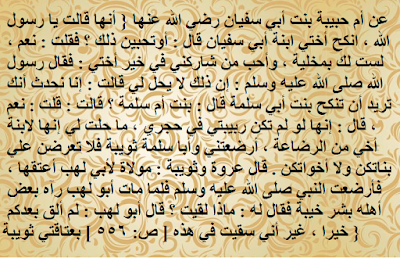 عن أم حبيبة بنت أبي سفيان رضي الله عنها { أنها قالت يا رسول
الله ، انكح أختي ابنة أبي سفيان قال : أوتحبين ذلك ؟ فقلت : نعم ،
لست لك بمخلية ، وأحب من شاركني في خير أختي : فقال رسول
الله صلى الله عليه وسلم : إن ذلك لا يحل لي قالت : إنا نحدث أنك
تريد أن تنكح بنت أبي سلمة قال : بنت أم سلمة ؟ قالت : قلت : نعم
، قال : إنها لو لم تكن ربيبتي في حجري ، ما حلت لي إنها لابنة
أخي من الرضاعة ، أرضعتني وأبا سلمة ثويبة فلا تعرضن علي
بناتكن ولا أخواتكن . قال عروة وثويبة : مولاة لأبي لهب أعتقها ،
فأرضعت النبي صلى الله عليه وسلم فلما مات أبو لهب رآه بعض
أهله بشر خيبة فقال له : ماذا لقيت ؟ قال أبو لهب : لم ألق بعدكم
خيرا ، غير أني سقيت في هذه [ ص: ٥٥٦ ] بعتاقتي ثويبة }